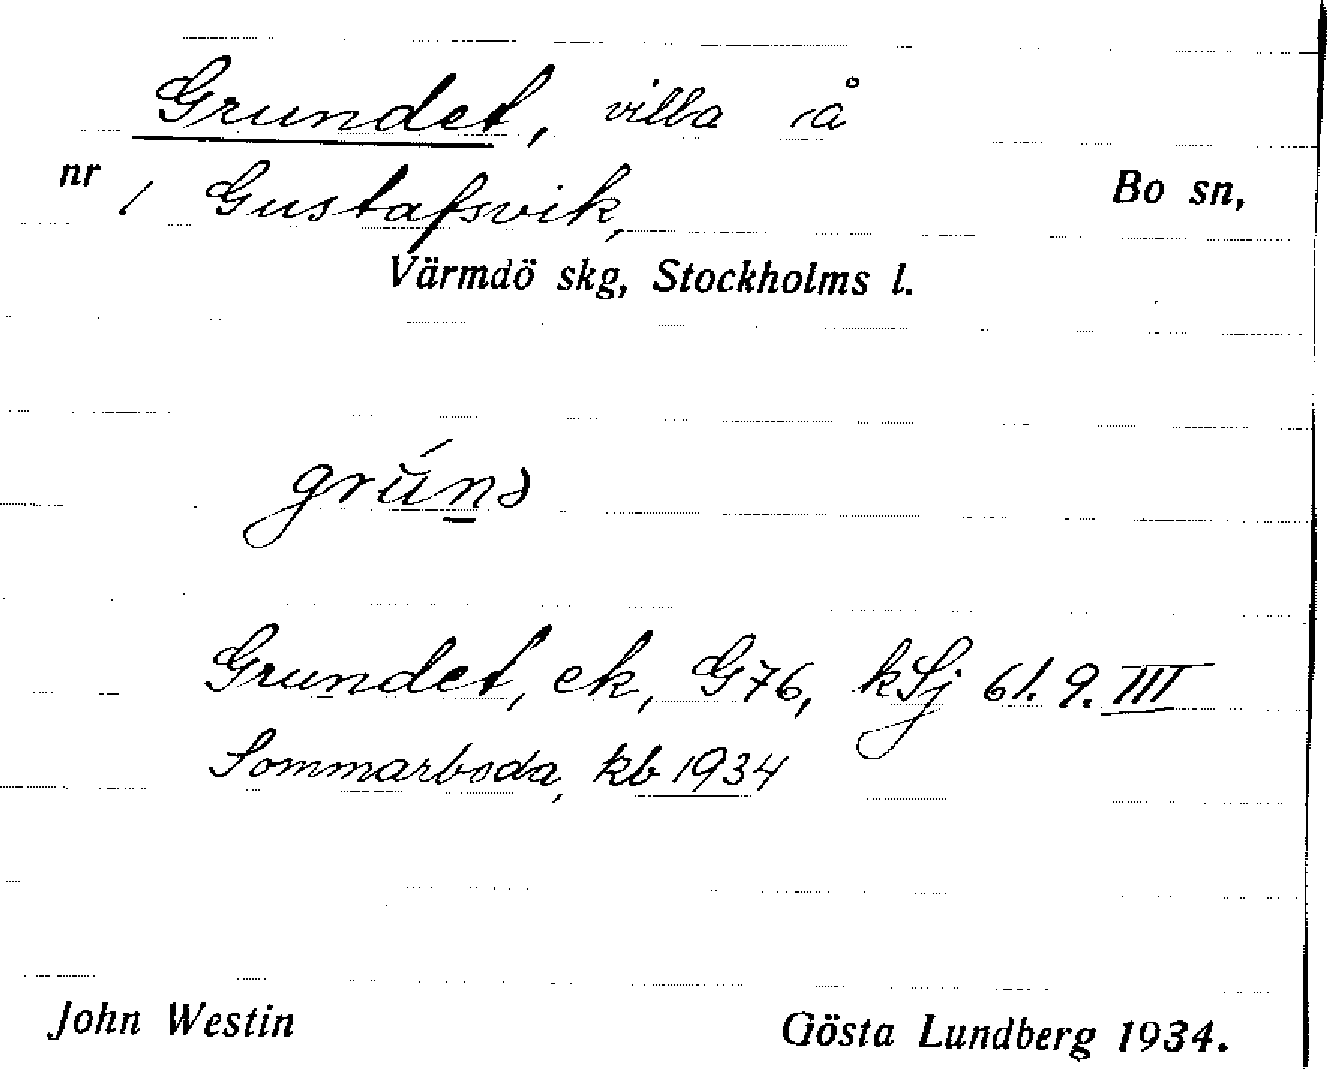 Grundet, villa å
nr 1 Gustafsvik, Bo sn,
Värmdö skg, Stockholms l.
Grundet, ek, G76, kSj 61. 9. III
Sommarboda, kb 1934
John Westin Gösta Lundberg 1934.